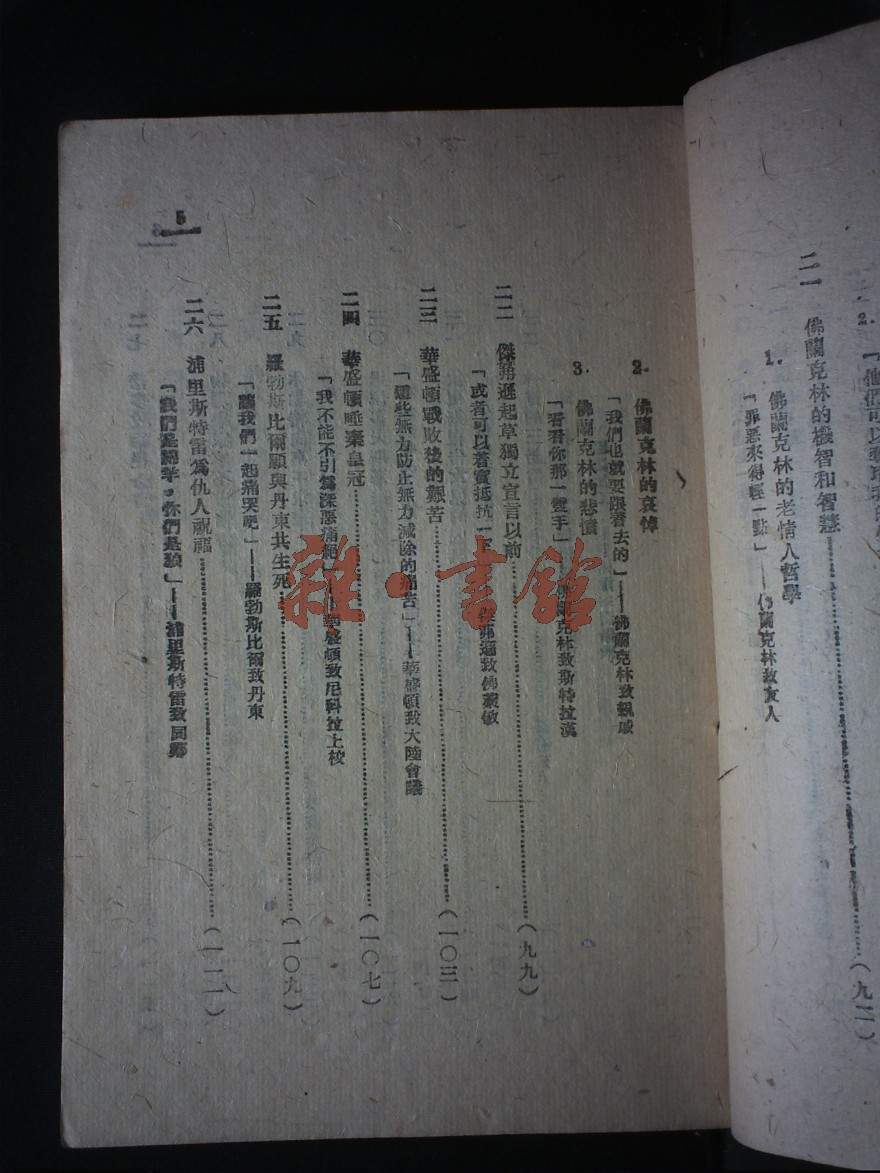 2.「他們可以
二一 佛蘭克林的機智和智慧……(九二)
1. 佛蘭克林的老情人哲學
「罪惡來得輕一點」——佛蘭克林致友人
2. 佛蘭克林的哀悼
「我們也就要跟著去的」——佛蘭克林致親戚
3. 佛蘭克林的悲憤
「看看你那一雙手」——佛蘭克林致斯特拉漢
二二 傑弗遜起草獨立宣言以前……(九九)
「或者可以著實抵抗一 致佛蘭敏
二三 華盛頓戰敗後的艱苦……(一〇三)
「這些無力防止無力減除的痛苦」——華盛頓致大陸會議
二四 華盛頓唾棄皇冠……(一〇七)
「我不能不引為深惡痛絕」——華盛頓致尼科拉上校
二五 羅勃斯比爾願與丹東共生死……(一〇九)
「讓我們一起痛哭吧」——羅勃斯比爾致丹東
二六 浦里斯特雷為仇人祝福……(一一二)
「我們是綿羊,你們是狼」——浦里斯特雷致同鄉
5
雜·書館